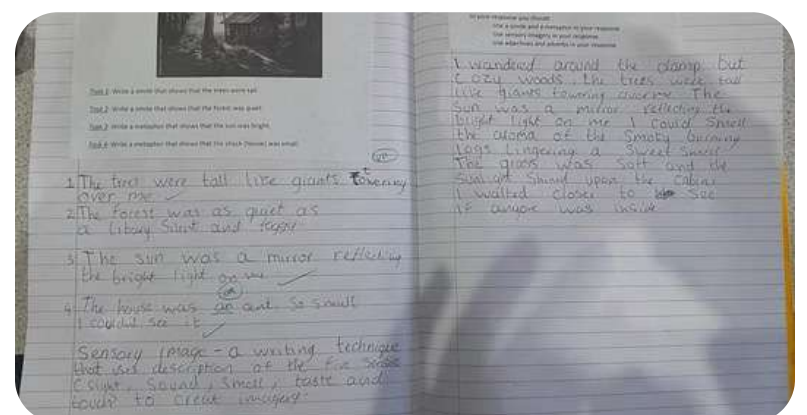 Task 1: Write a simile that shows that the trees were tall.
Task 2: Write a simile that shows that the forest was quiet.
Task 3: Write a metaphor that shows that the sun was bright.
Task 4: Write a metaphor that shows that the shack (house) was small.
1 The trees were tall like giants towering
over me
2 The forest was as quiet as
a libary silent and
3 The sun was a mirror reflecting
the bright light on me
4 The house was an ant so small
I could see it
Sensory image - a writing technique
that uses description of the five senses
(sight, sound, smell, taste and
touch) to creat imagery.
In your response you should:
Use a simile and a metaphor in your response
Use sensory imagery in your response
Use adjectives and adverbs in your response
I wandered around the damp but
cozy woods. the trees were tall
like giants towering over me The
sun was a mirror reflecting the
bright light on me I could smell
the aroma of the smoky burning
logs lingering a sweet smell
The grass was soft and the
sunlight shined upon the cabin
I walked closer to see
if anyone was inside